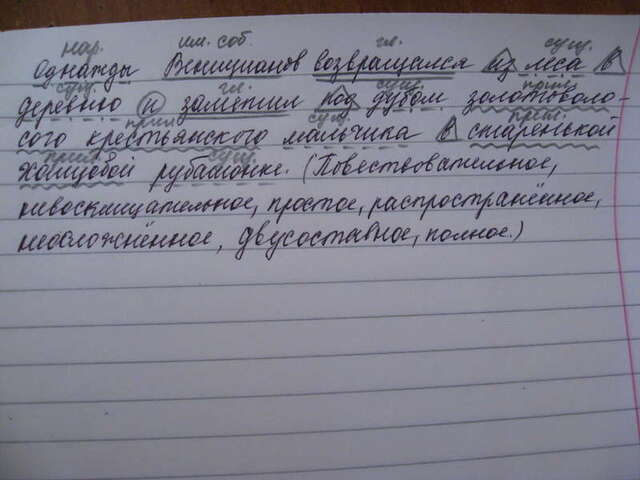 нар. им. соб. гл. сущ.
Однажды Венецианов возвращался из леса в
сущ. гл. сущ. прил.
деревню и заметил под дубом золотоволо-
прил. сущ. прил.
сого крестьянского мальчика в старенькой
прил. сущ.
холщовой рубашонке. (Повествовательное,
невосклицательное, простое, распространённое,
неосложнённое, двусоставное, полное.)